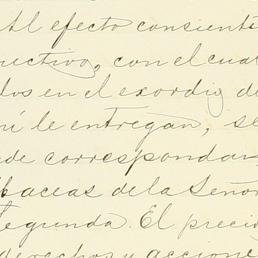 Al efecto consienti
rectivo, con el cua
dos en el exordio de
ní le entregan, se
de correspondan
baceas de la Señor
Segunda. El preci
derechos y accione